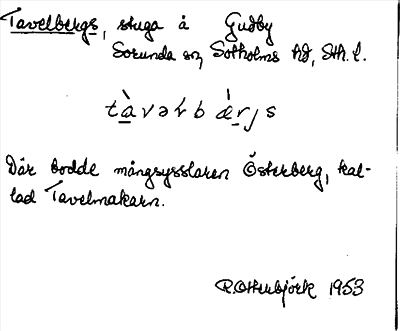 Tavelbergs, stuga å Gudby
Sorunda sn, Sotholms hd, Sth. l.
tàvəłb ærjs
Där bodde mångsysslaren Österberg, kal-
lad Tavelmakarn.
R. Otterbjörk 1953